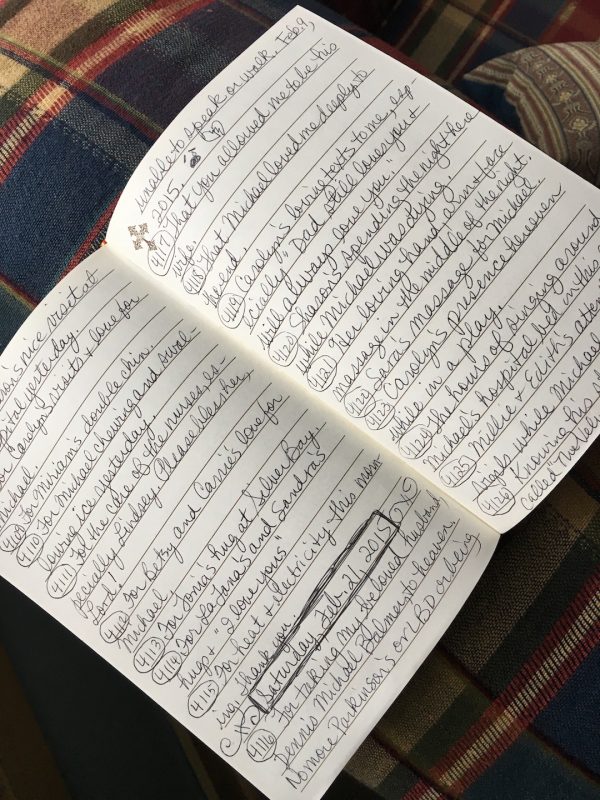 's nice visit at
yesterday.
Carolyn's visits + love for
Michael.
4109 For Miriam's double chin.
4110 For Michael chewing and swal-
lowing ice yesterday.
4111 For the care of the nurses, es-
pecially Lindsey. Please bless her,
Lord!
4112 For Betsy and Cassie's love for
Michael.
4113 For Tonia's hug at Silver Bay.
4114 For LaTana's and Sandra's
hugs + "I love yous"
4115 For heat + electricity this morn
ing, thank you.
Saturday, Feb. 21, 2015
4116 For taking my beloved husband,
Dennis Michael Palmer to heaven.
No more Parkinson's or LBD or being
unable to speak or walk. Feb. 9,
2015.
4117 That you allowed me to be his
wife.
4118 That Michael loved me deeply to
the end.
4119 Carolyn's loving texts to me, esp-
ecially, "Dad still loves you +
will always love you."
4120 Sharon's spending the night here
while Michael was dying
4121 Her loving hand, arm + face
massage in the middle of the night.
4122 Sara's massage for Michael
4123 Carolyn's presence here even
while in a play.
4124 The hours of singing around
Michael's hospital bed in this
4125 Millie + Edith's
while Michael
4126 Knowing his
called